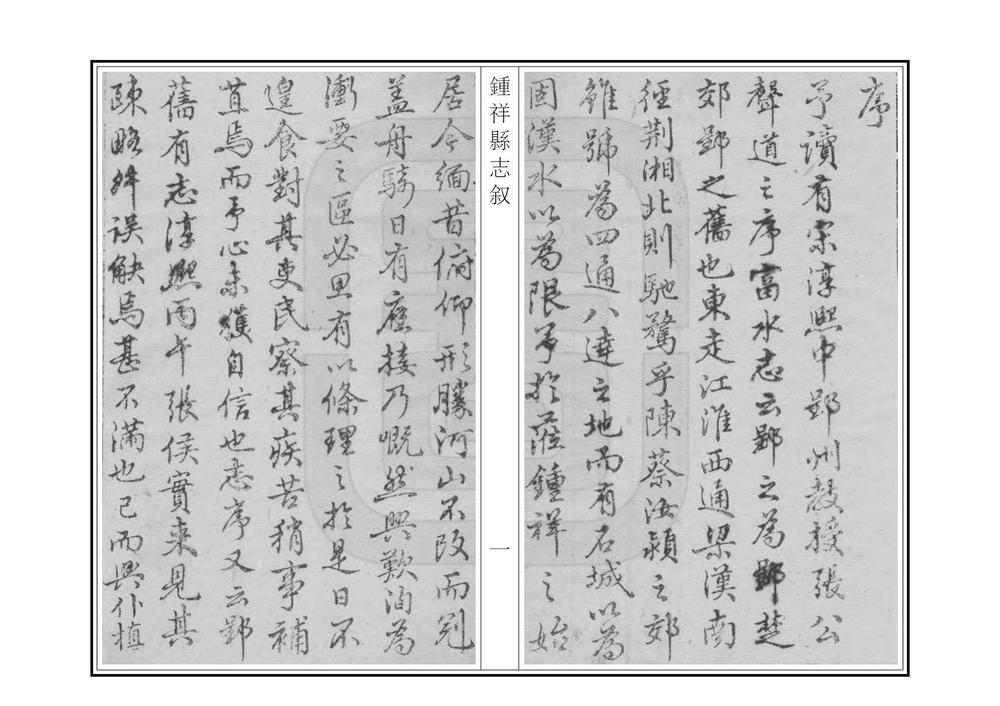 序
予讀有宋淳熙中郢州教授張公
聲道之序富水志云郢之為郢楚
郊郢之舊也東走江淮西通梁漢南
徑荆湘北則馳驁乎陳蔡汝潁之郊
雖號為四通八達之地而有石城以為
固漢水以為限予於蒞鍾祥之始
鍾祥縣志叙
一
居今緬昔俯仰形勝河山不改而冠
盖舟騎日有應接乃嘅然興歎洵為
衝要之區必思有以條理之於是日不
遑食對其吏民察其疾苦稍事補
苴焉而予心未獲自信也志序又云郢
舊有志淳熙丙午張侯實來見其
踈略舛误觖焉甚不滿也已而興仆植